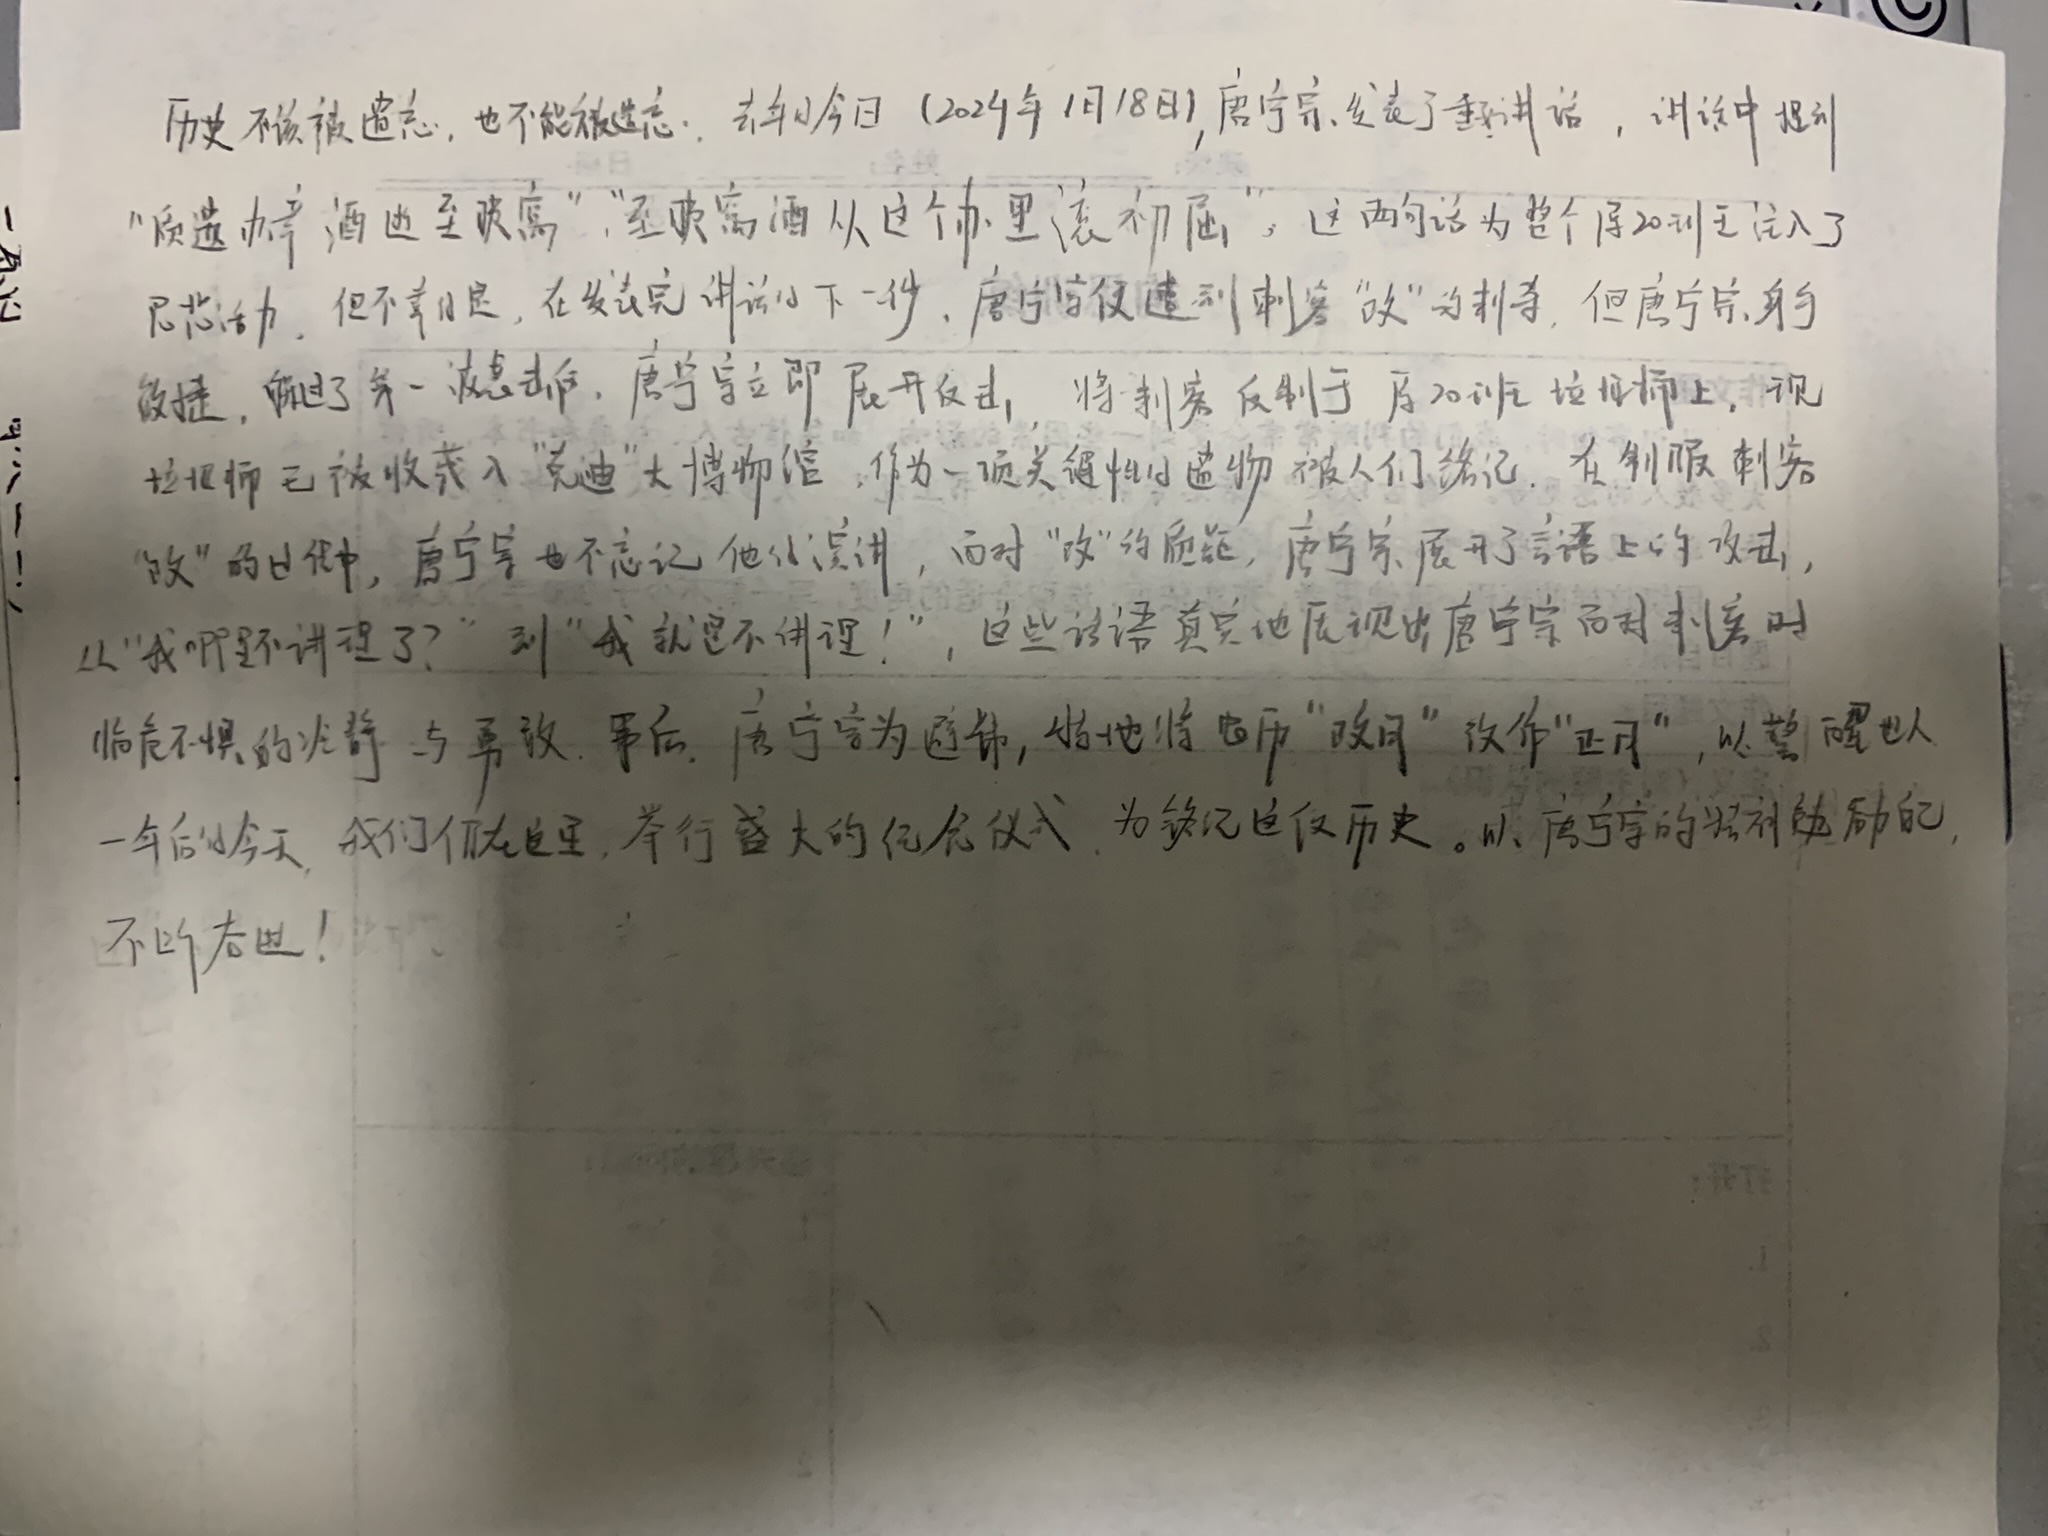 历史不该被遗忘，也不能被遗忘。去年的今日（2024年1月18日），唐宁宗发表了重要讲话，讲话中提到
"质选办章酒进至陕窝"，"至陕窝酒从这个办里滚初屈"，这两句话为整个原20班注入了
思想活力。但不幸的是，在发表完讲话的下一秒，唐宁宗便遭到刺客"改"的刺杀，但唐宁宗身手
敏捷，躲过了第一波袭击后，唐宁宗立即展开反击，将刺客反制于原20班垃圾桶上，现
垃圾桶已被收录入"克迪"大博物馆，作为一项关键性的遗物被人们铭记。在制服刺客
"改"的过程中，唐宁宗也不忘记他的演讲，面对"改"的质疑，唐宁宗展开了言语上的攻击，
从"我哪里不讲理了？"到"我就是不讲理！"，这些话语真实地展现出唐宁宗面对刺客时
临危不惧的冷静与勇敢。事后，唐宁宗为避讳，特地将农历"改月"改作"正月"，以警醒世人
一年后的今天，我们仍在这里，举行盛大的纪念仪式，为铭记这段历史。以唐宁宗的精神勉励自己，
不断奋进！